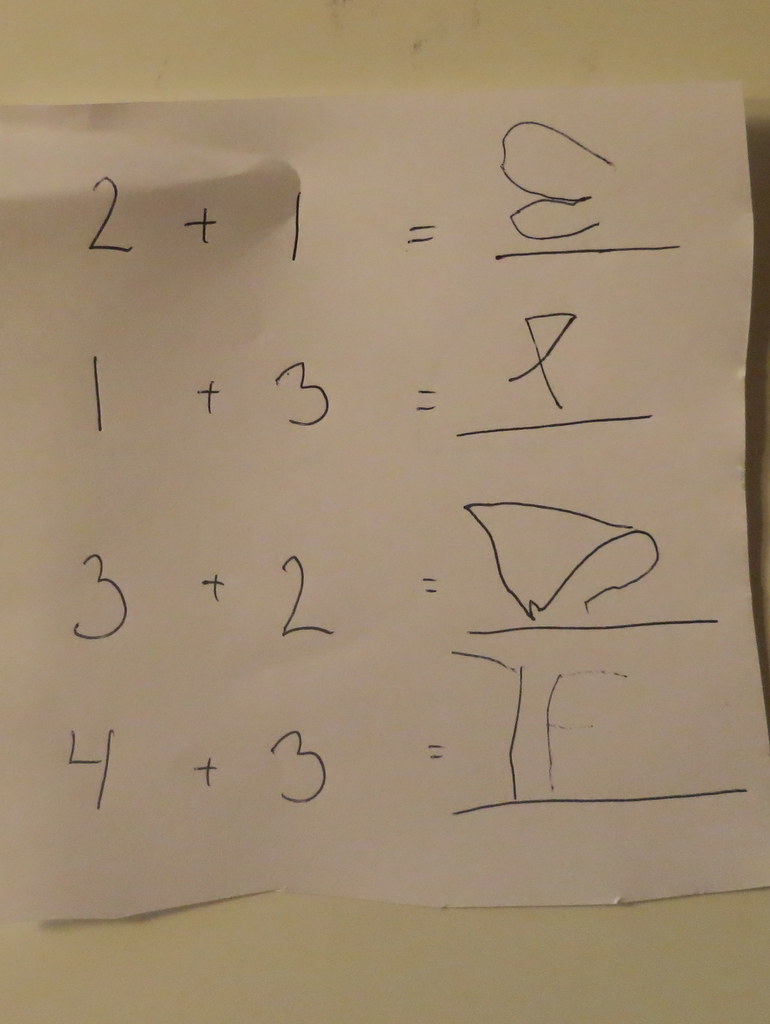 2 + 1 = 3
1 + 3 =
3 + 2 =
4 + 3 =